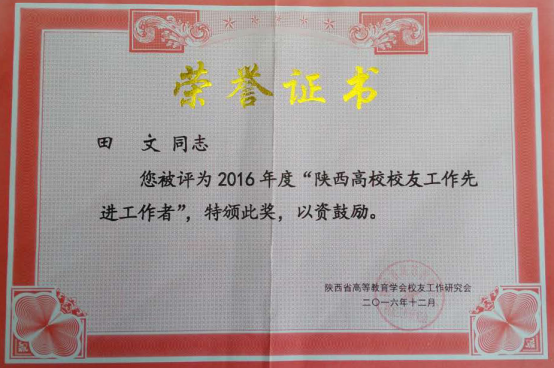 荣誉证书
田 文 同志
您被评为2016年度“陕西高校校友工作先
进工作者”，特颁此奖，以资鼓励。
陕西省高等教育学会校友工作研究会
二〇一六年十二月